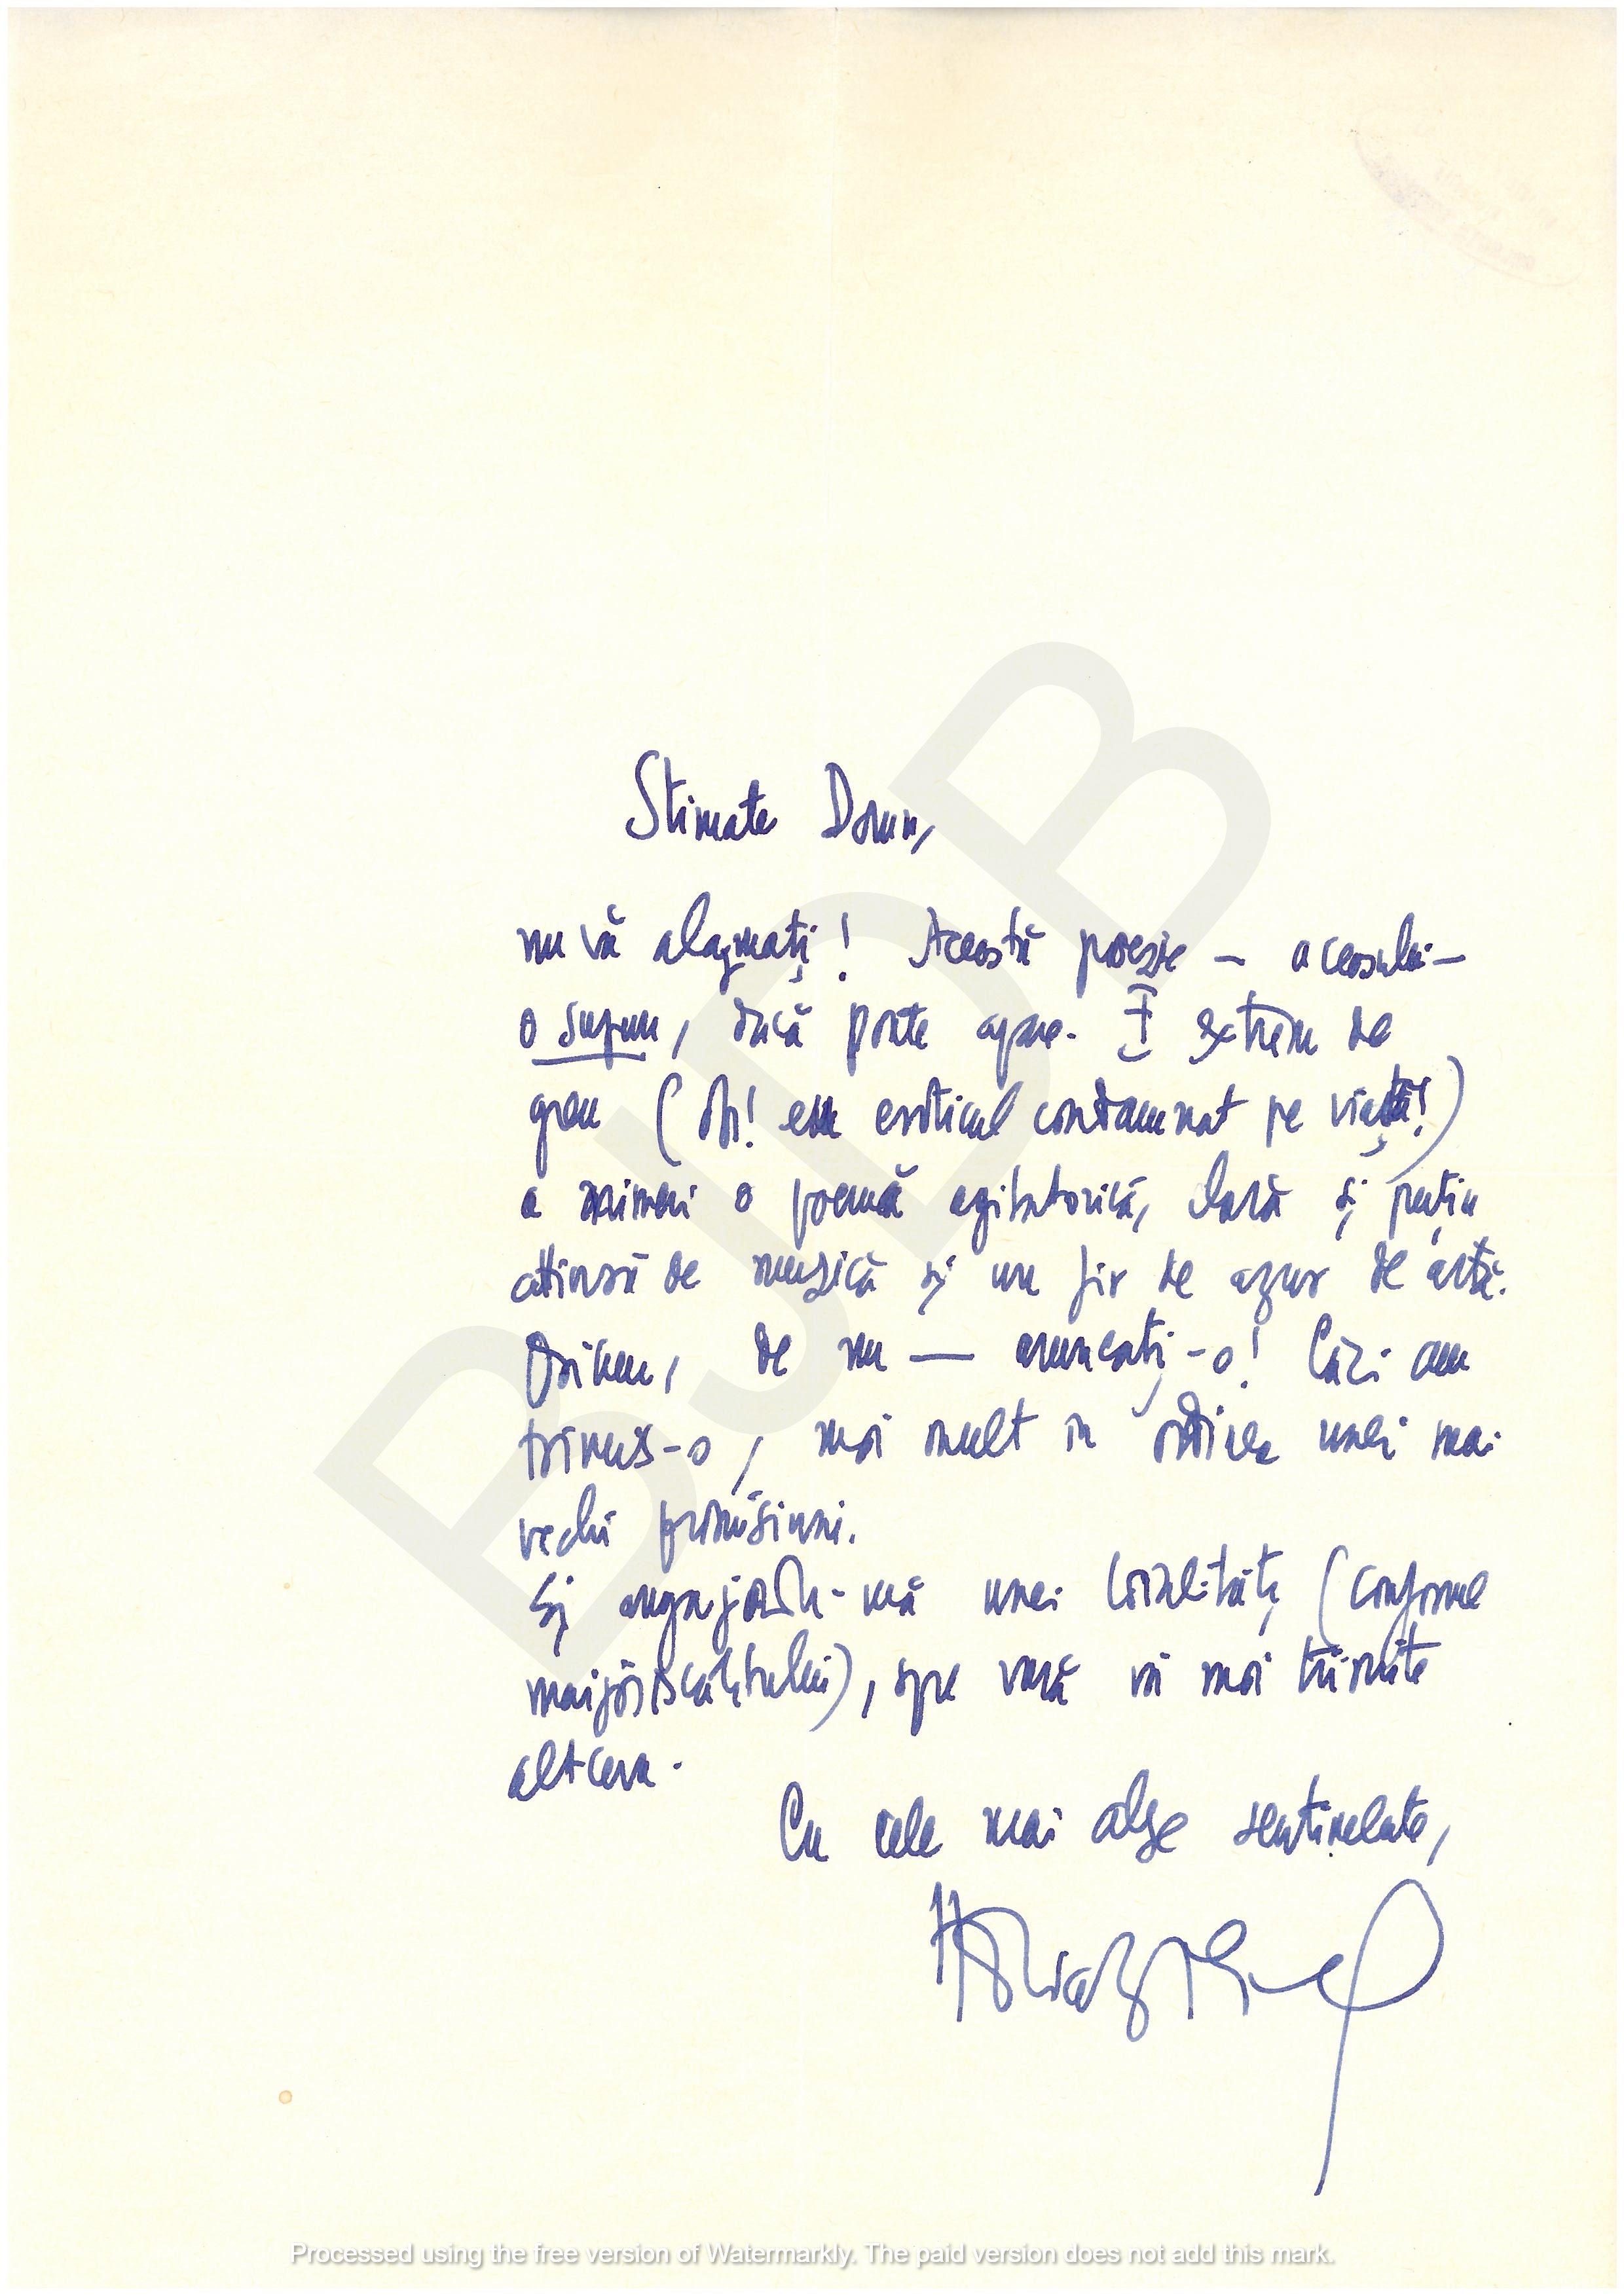 Stimate Domn,
nu vă alarmați! Această poezie – aceasula –
o supun, dacă poate apare. E extrem de
greu (oh! eu exoticul condamnat pe viață!)
a nimeri o poemă agitatorică, clară și puțin
atinsă de muzică și un fir de azur de artă.
Oricum, de nu — aruncați-o! Căci am
trimis-o, mai mult în onoarea unei mai
vechi promisiuni.
Și angajându-mă unei loialități (conform
maijos), spre vară vă mai trimite
altceva.
Cu cele mai alese sentimente,
BJDB
Processed using the free version of Watermarkly. The paid version does not add this mark.